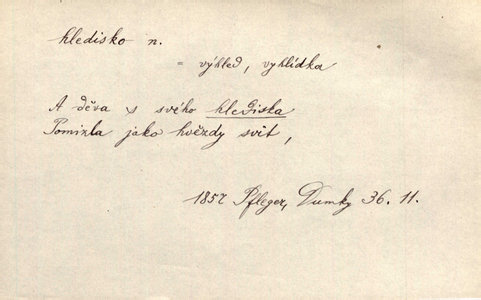 hledisko n.
= výhled, vyhlídka
A děva s svého hlediska
Pomizla jako hvězdy svit,
1857 Pfleger, Dumky 36. 11.